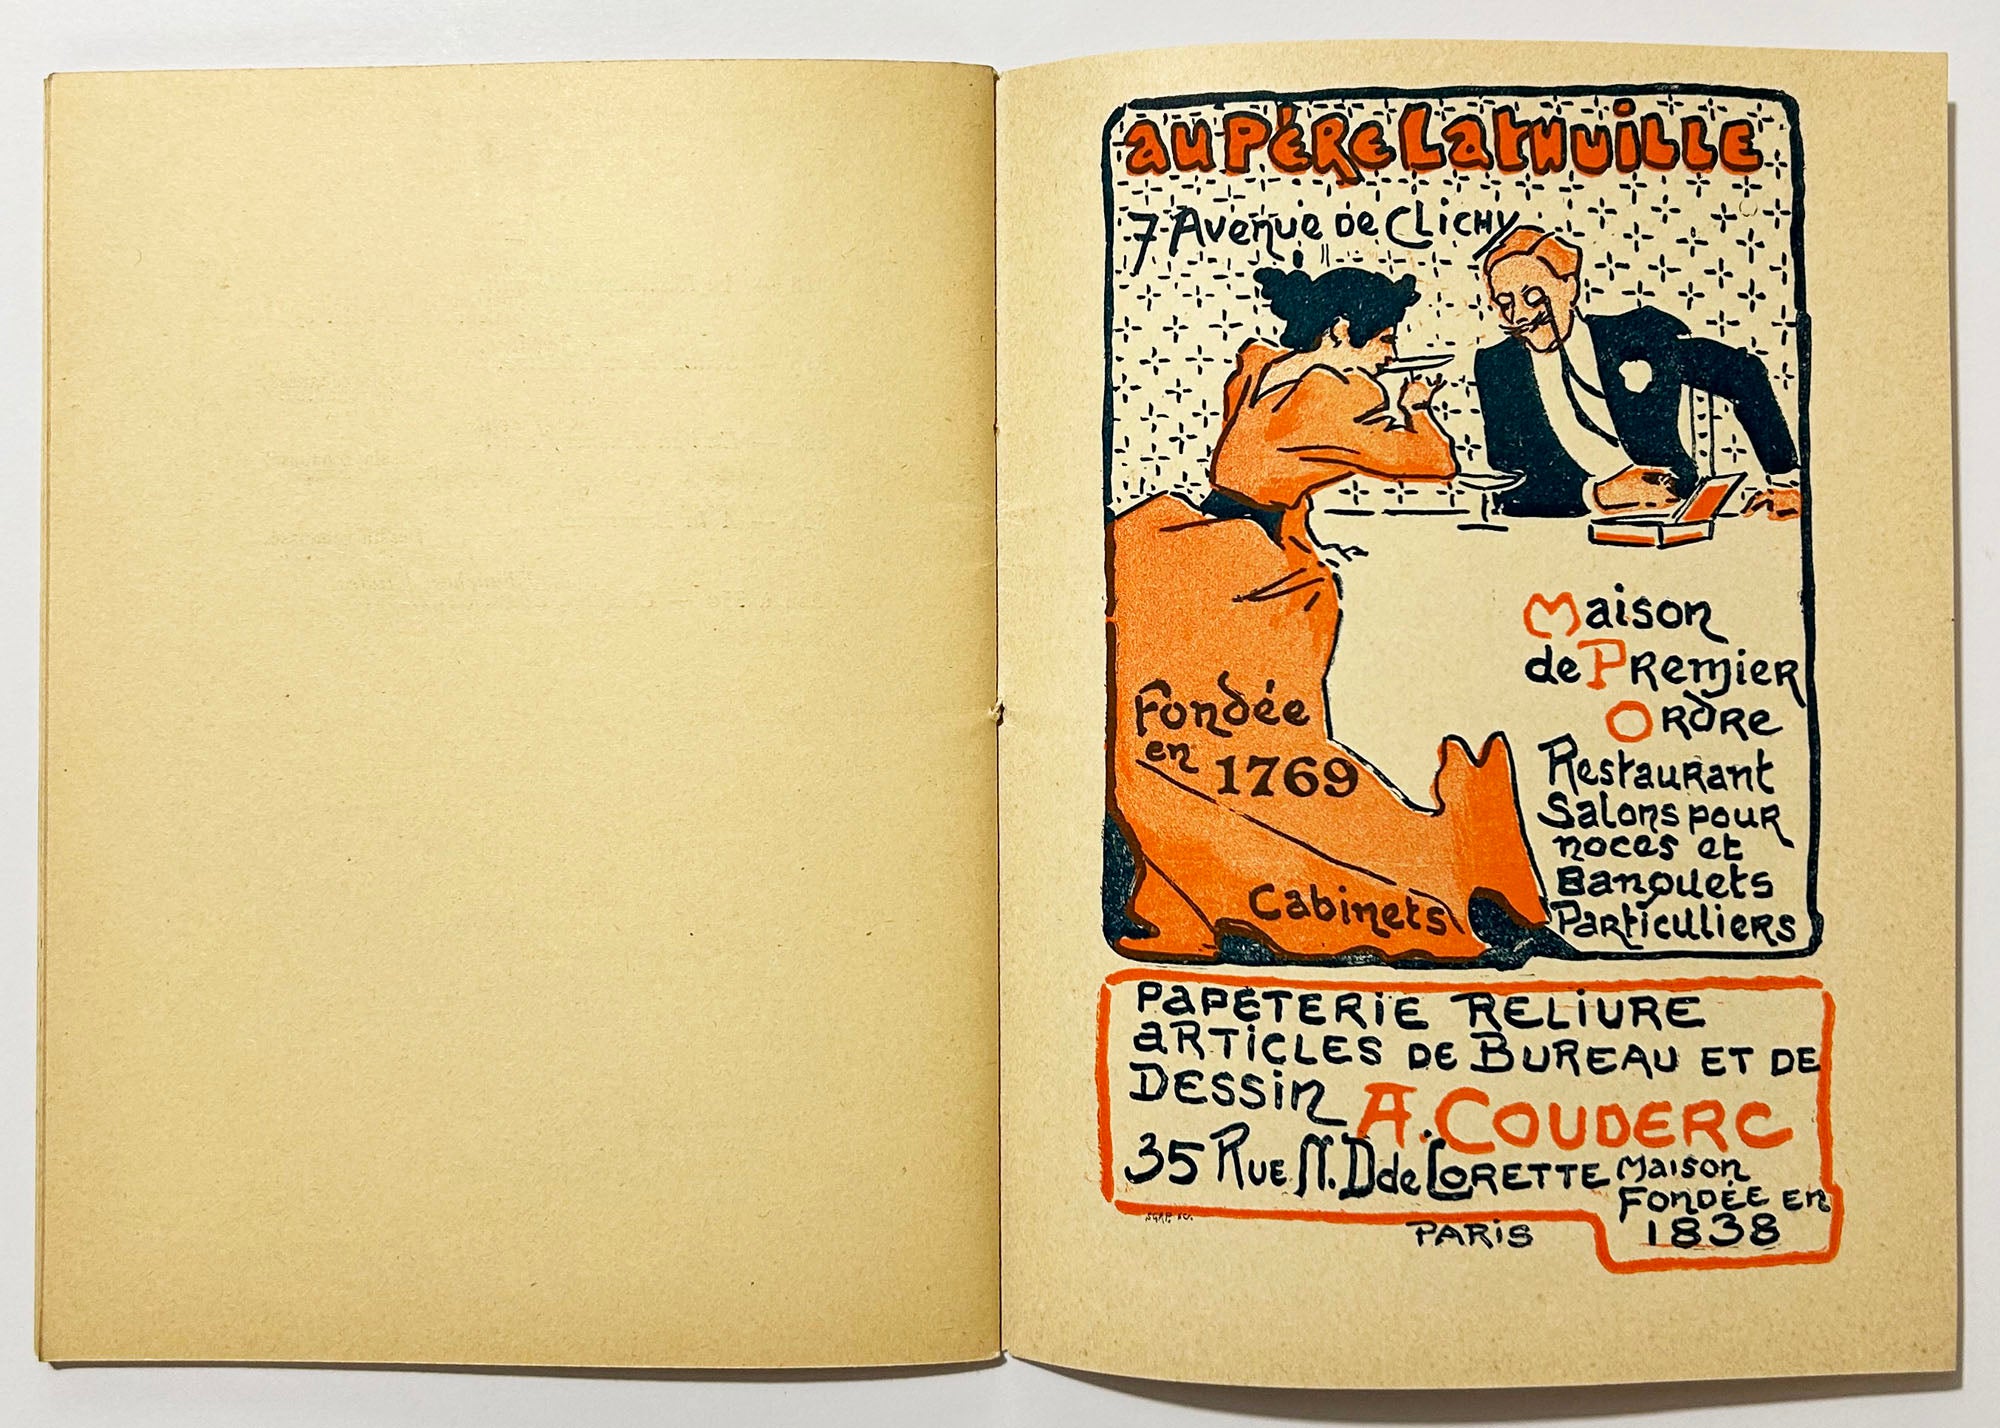 au Père Lathuille
7 Avenue de Clichy
Maison
de Premier
Ordre
Fondée
en 1769
Restaurant
Salons pour
noces et
Banquets
Particuliers
Cabinets
Papeterie Reliure
articles de Bureau et de
Dessin A. Couderc
35 Rue N. D de Lorette Maison
Fondée en
1838
Paris